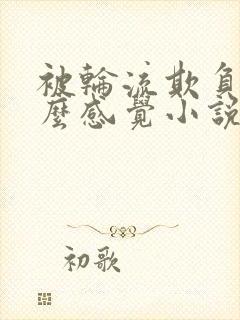 被輪流欺負
麼感覺小說
初歌